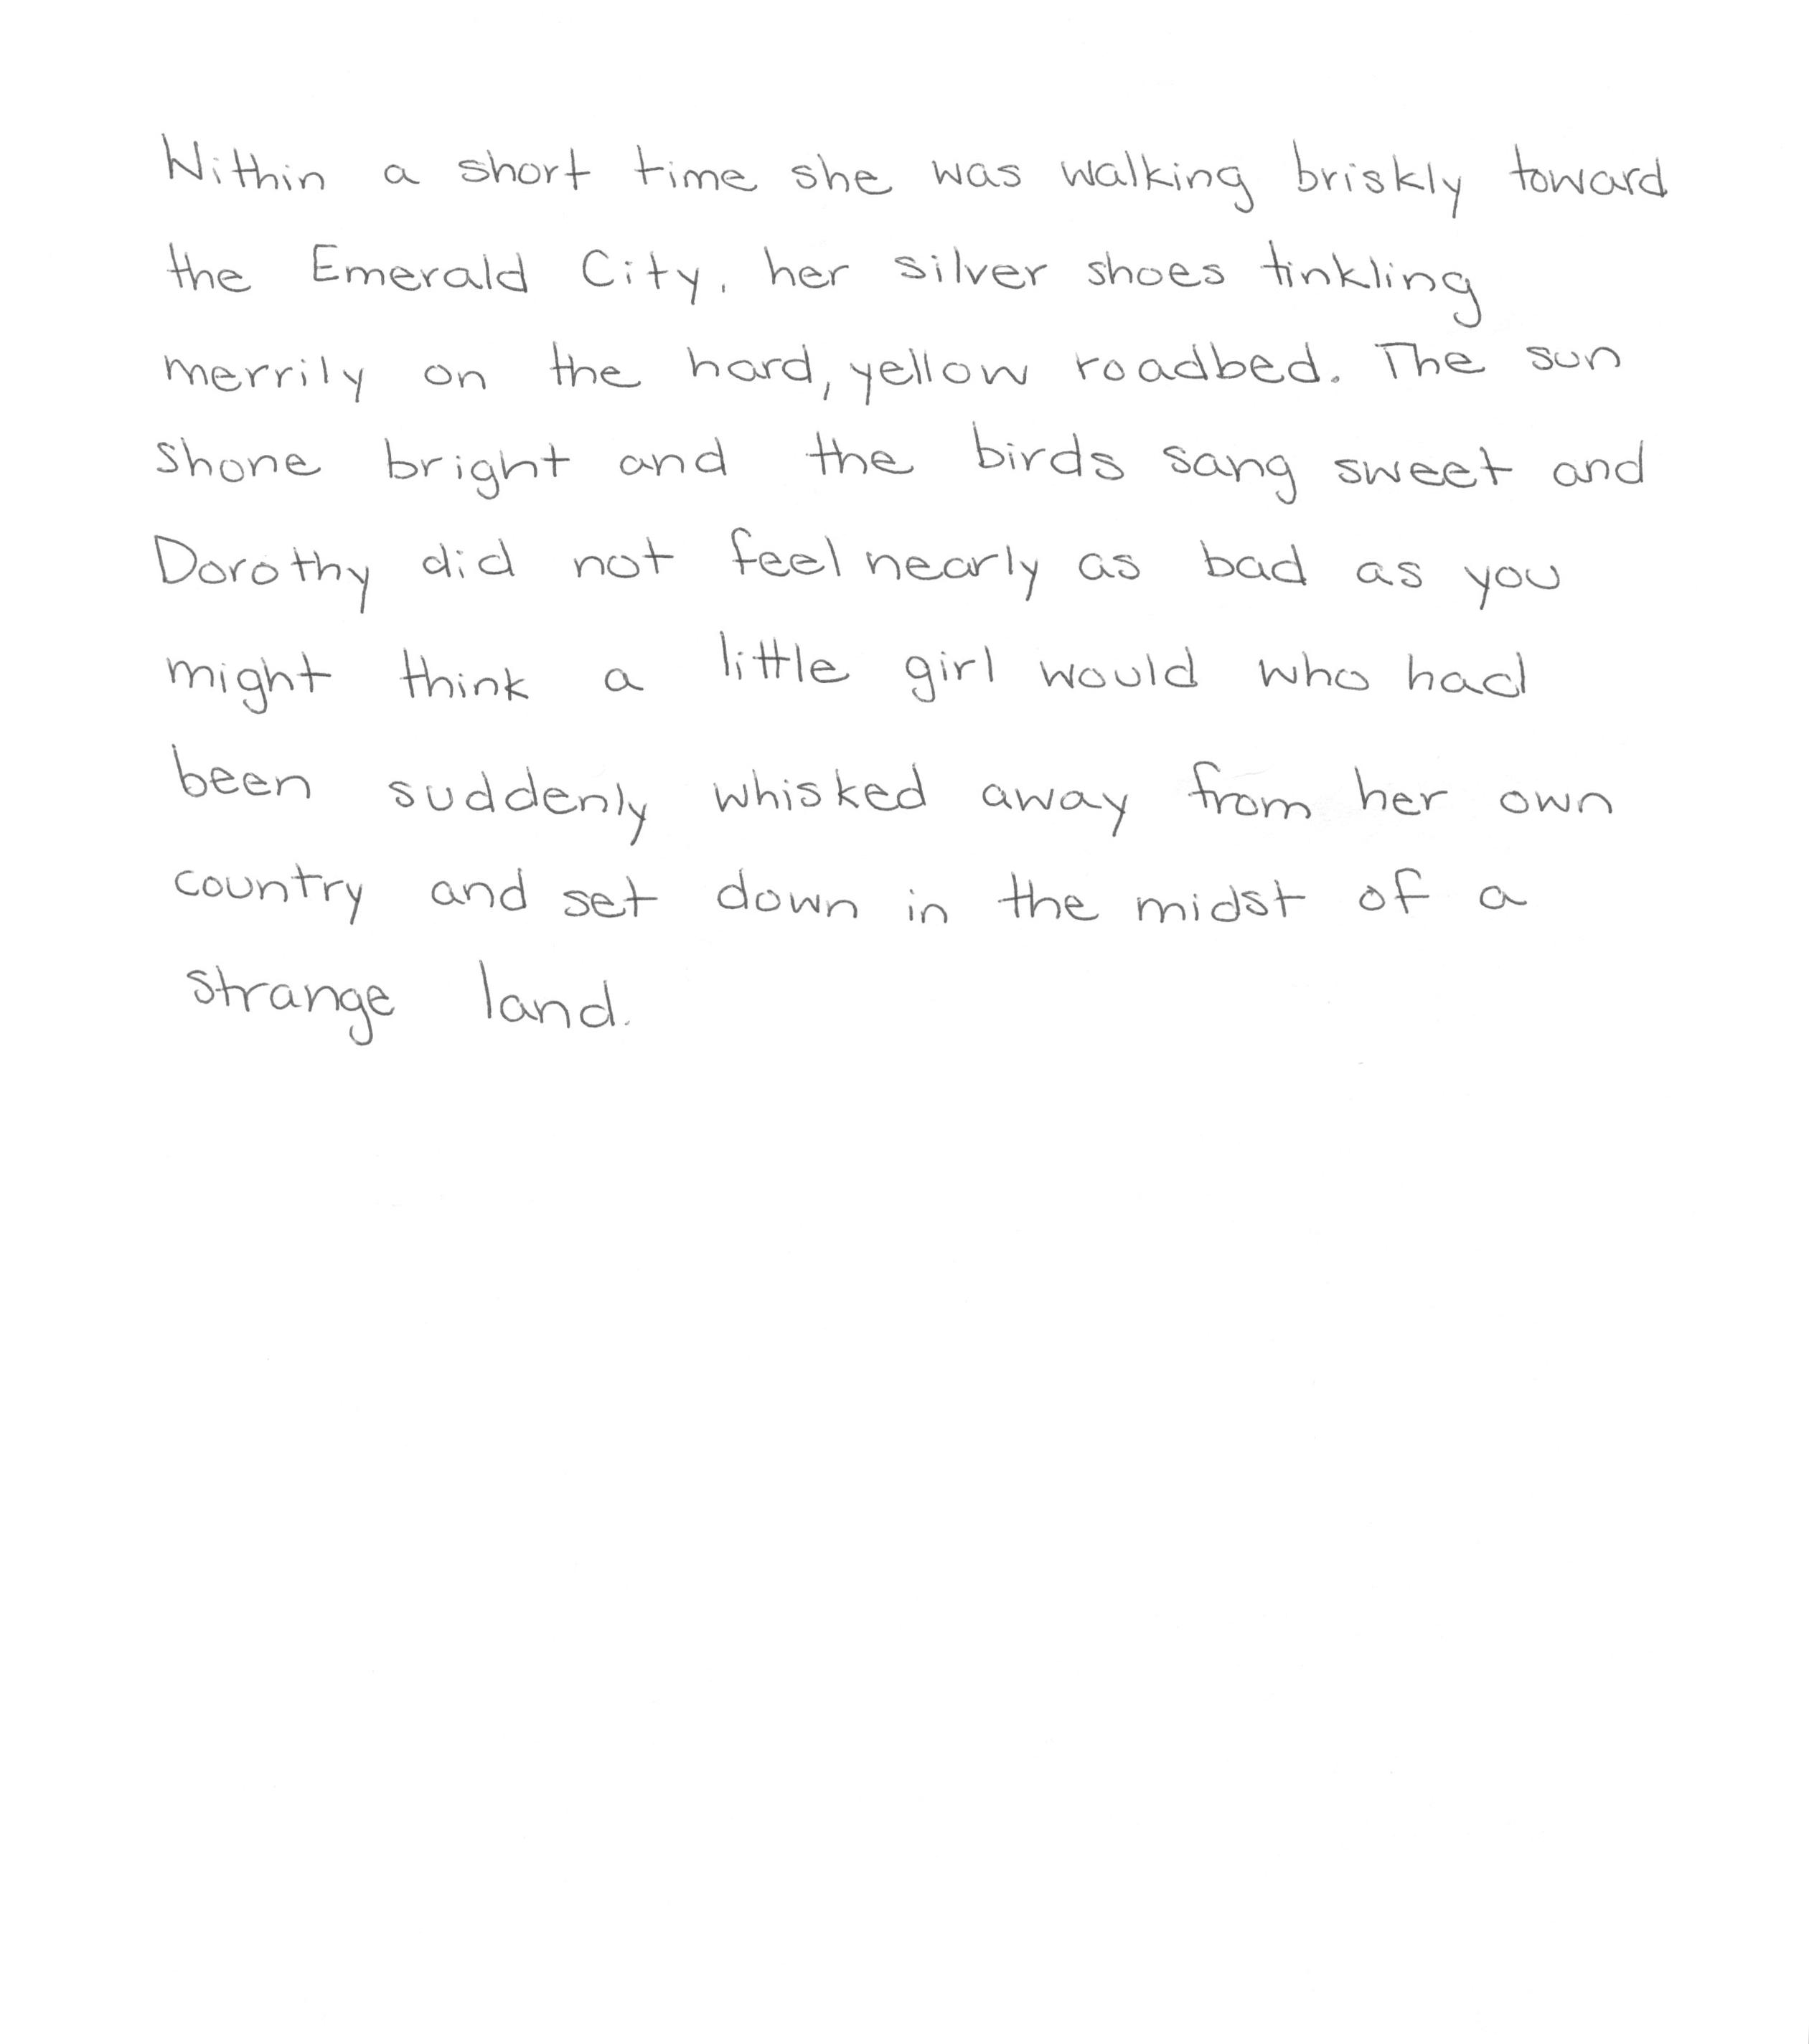 Within a short time she was walking briskly toward
the Emerald City, her silver shoes tinkling
merrily on the hard, yellow roadbed. The sun
shone bright and the birds sang sweet and
Dorothy did not feel nearly as bad as you
might think a little girl would who had
been suddenly whisked away from her own
country and set down in the midst of a
strange land.